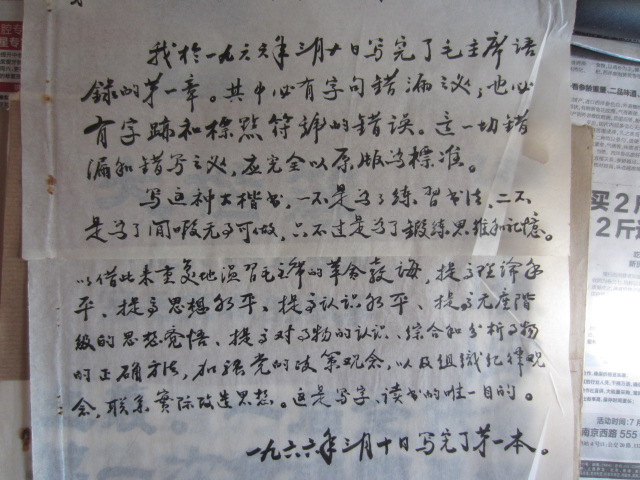 我於一九六六年三月十日写完了毛主席語
錄的第一章。其中必有字句錯漏之义，也必
有字跡和标點符號的錯误。這一切錯
漏和錯写之义，应完全以原版為標准。
写這种大楷书，一不是為了練習书法，二不
是為了间暇无事可做，只不过是為了鍛練思維和记憶。
以借此来重复地温習毛主席的革命教诲，提高理论水
平、提高思想水平、提高认识水平、提高无產階
級的思想觉悟、提高对事物的认识、综合和分析事物
的正确方法，加强党的政策观念，以及组織纪律观
念，联系实际改造思想。這是写字、读书的唯一目的。
一九六六年三月十日写完了第一本。
买2斤
2斤
活动时间:7月
南京西路 555